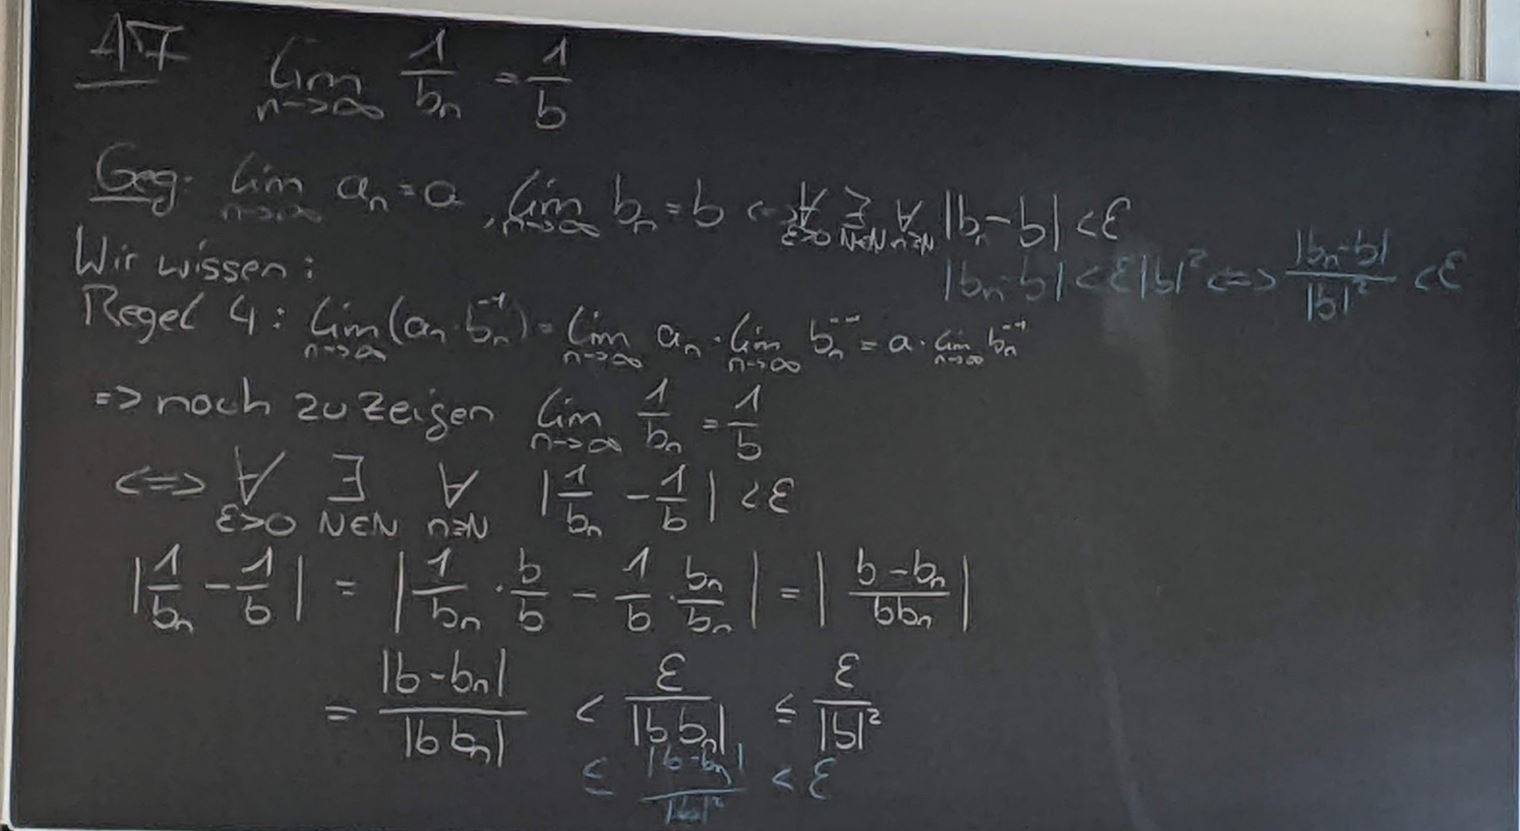 17 lim_{n->∞} 1/b_n = 1/b
Geg: lim_{n->∞} a_n = a, lim_{n->∞} b_n = b <=> ∀_{ε>0} ∃_{N∈ℕ} ∀_{n≥N} |b_n - b| < ε
|b_n - b| < ε|b|² <=> |b_n - b| / |b|² < ε
Wir wissen:
Regel 4: lim_{n->∞} (a_n · b_n^{-1}) = lim_{n->∞} a_n · lim_{n->∞} b_n^{-1} = a · lim_{n->∞} b_n^{-1}
=> noch zu zeigen lim_{n->∞} 1/b_n = 1/b
<=> ∀_{ε>0} ∃_{N∈ℕ} ∀_{n≥N} |1/b_n - 1/b| < ε
|1/b_n - 1/b| = |1/b_n · b/b - 1/b · b_n/b_n| = |(b - b_n)/(b b_n)|
= |b - b_n| / |b b_n| < ε / |b b_n| ≤ ε / |b|²
≤ |b - b_n| / |b|² < ε